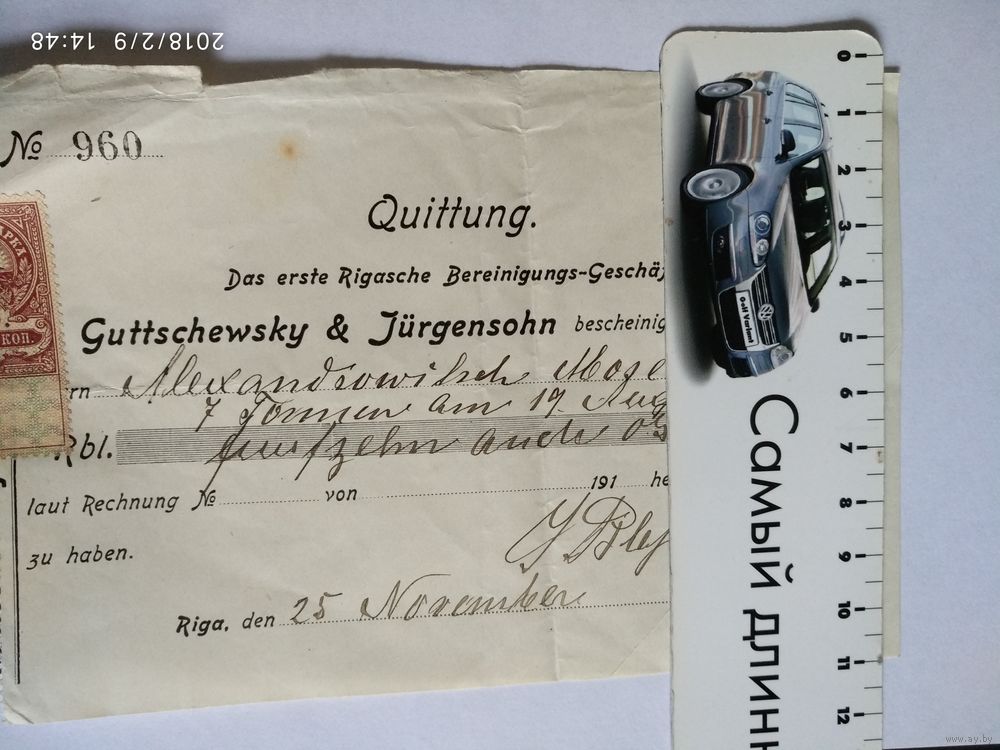 2018/2/9 14:48
№ 960
Quittung.
Das erste Rigasche Bereinigungs-Geschäf
Guttschewsky & Jürgensohn bescheinig
rn Alexandrowitsch
7 Tonnen am 19 Aug
Rbl. fünfzehn
laut Rechnung № von 191 he
zu haben.
Riga, den 25 November
МАРКА
КОП.
0
1
2
3
4
5
6
7
8
9
10
11
12
Golf Variant
Самый длинн
www.ay.by